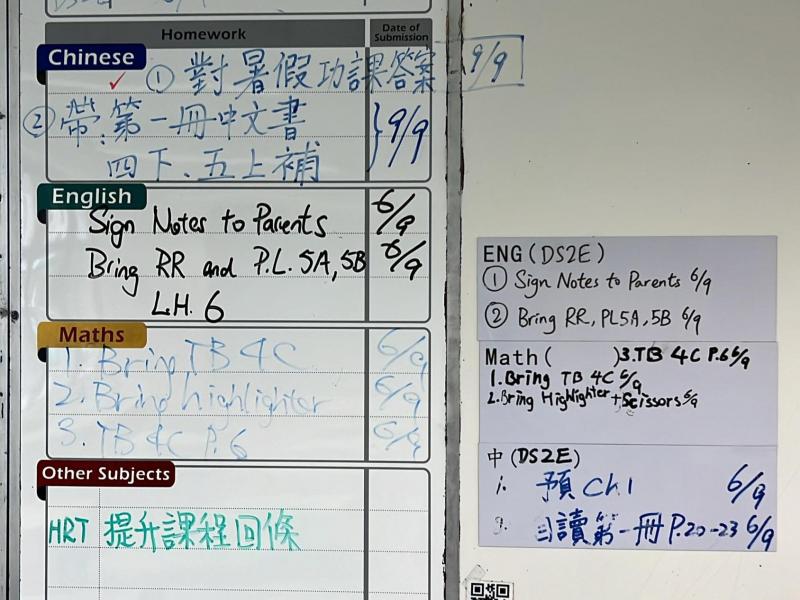 Homework
Date of Submission
Chinese
✓ ① 對暑假功課答案 9/9
② 帶:第一冊中文書 } 9/9
四下、五上補
English
Sign Notes to Parents 6/9
Bring RR and P.L. 5A, 5B 6/9
L.H. 6
Maths
1. Bring TB 4C 6/9
2. Bring highlighter 6/9
3. TB 4C P.6 6/9
Other Subjects
HRT 提升課程回條
ENG (DS2E)
① Sign Notes to Parents 6/9
② Bring RR, PL5A, 5B 6/9
Math ( ) 3. TB 4C P.6 6/9
1. Bring TB 4C 6/9
2. Bring Highlighter + Scissors 6/9
中 (DS2E)
1. 預 Ch1 6/9
讀第一冊 P.20-23 6/9